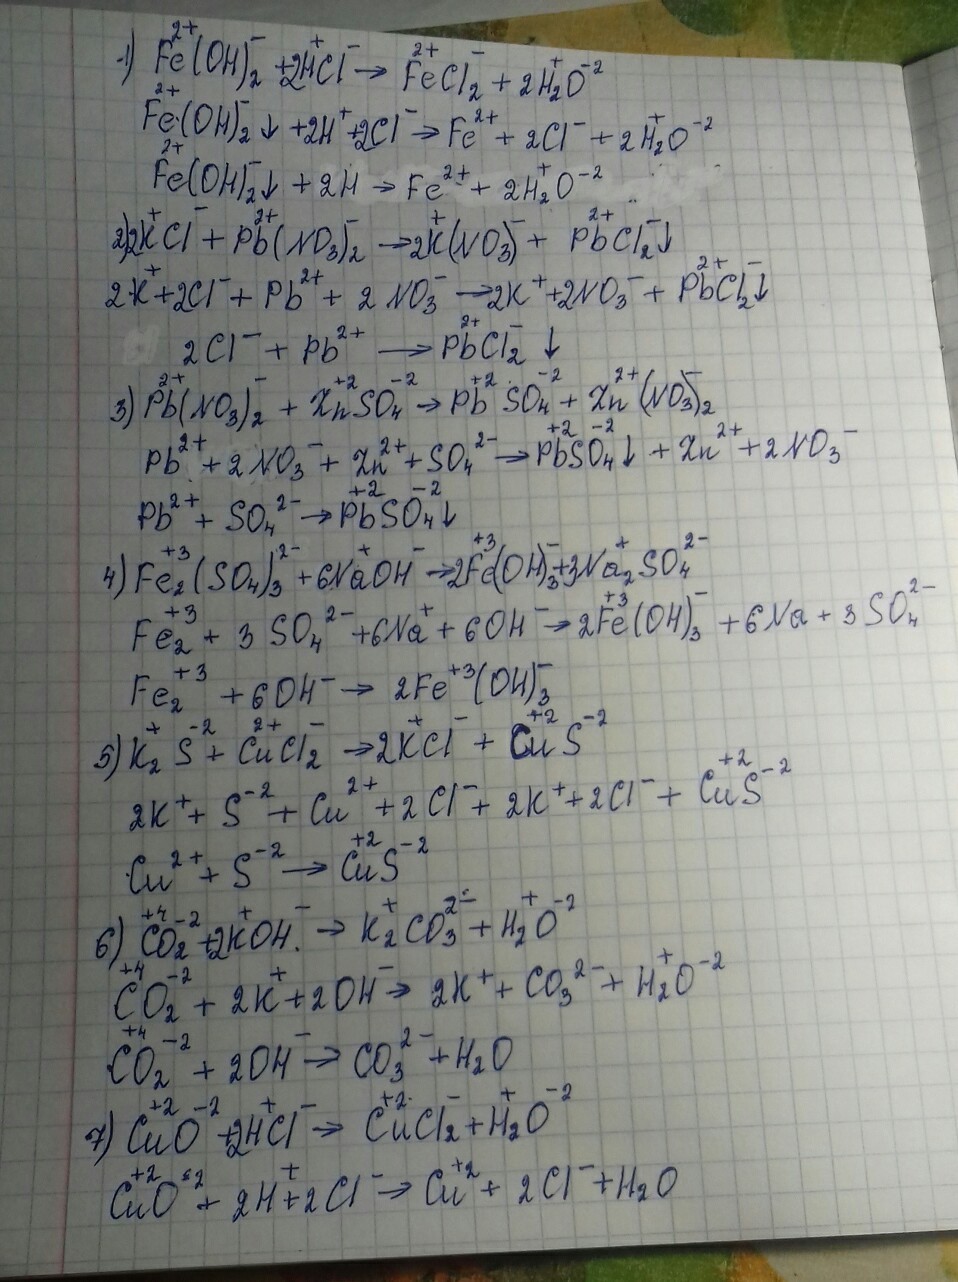 1) Fe²⁺(OH)₂⁻ + 2H⁺Cl⁻ → Fe²⁺Cl₂⁻ + 2H₂⁺O⁻²
Fe²⁺(OH)₂⁻↓ + 2H⁺ + 2Cl⁻ → Fe²⁺ + 2Cl⁻ + 2H₂⁺O⁻²
Fe²⁺(OH)₂⁻↓ + 2H → Fe²⁺ + 2H₂⁺O⁻²
2) 2K⁺Cl⁻ + Pb²⁺(NO₃)₂⁻ → 2K⁺(NO₃)⁻ + Pb²⁺Cl₂⁻↓
2K⁺ + 2Cl⁻ + Pb²⁺ + 2NO₃⁻ → 2K⁺ + 2NO₃⁻ + Pb²⁺Cl₂⁻↓
2Cl⁻ + Pb²⁺ → Pb²⁺Cl₂⁻ ↓
3) Pb²⁺(NO₃)₂⁻ + Zn⁺²SO₄⁻² → Pb⁺²SO₄⁻² + Zn²⁺(NO₃)₂⁻
Pb²⁺ + 2NO₃⁻ + Zn²⁺ + SO₄²⁻ → Pb⁺²SO₄⁻²↓ + Zn²⁺ + 2NO₃⁻
Pb²⁺ + SO₄²⁻ → Pb⁺²SO₄⁻²↓
4) Fe₂⁺³(SO₄)₃²⁻ + 6Na⁺OH⁻ → 2Fe⁺³(OH)₃⁻ + 3Na₂⁺SO₄²⁻
Fe₂⁺³ + 3SO₄²⁻ + 6Na⁺ + 6OH⁻ → 2Fe⁺³(OH)₃⁻ + 6Na + 3SO₄²⁻
Fe₂⁺³ + 6OH⁻ → 2Fe⁺³(OH)₃⁻
5) K₂⁺S⁻² + Cu²⁺Cl₂⁻ → 2K⁺Cl⁻ + Cu⁺²S⁻²
2K⁺ + S⁻² + Cu²⁺ + 2Cl⁻ + 2K⁺ + 2Cl⁻ + Cu⁺²S⁻²
Cu²⁺ + S⁻² → Cu⁺²S⁻²
6) C⁺⁴O₂⁻² + 2K⁺OH⁻ → K₂⁺CO₃²⁻ + H₂⁺O⁻²
C⁺⁴O₂⁻² + 2K⁺ + 2OH⁻ → 2K⁺ + CO₃²⁻ + H₂⁺O⁻²
C⁺⁴O₂⁻² + 2OH⁻ → CO₃²⁻ + H₂O
7) Cu⁺²O⁻² + 2H⁺Cl⁻ → Cu⁺²Cl₂⁻ + H₂⁺O⁻²
Cu⁺²O⁻² + 2H⁺ + 2Cl⁻ → Cu⁺² + 2Cl⁻ + H₂O